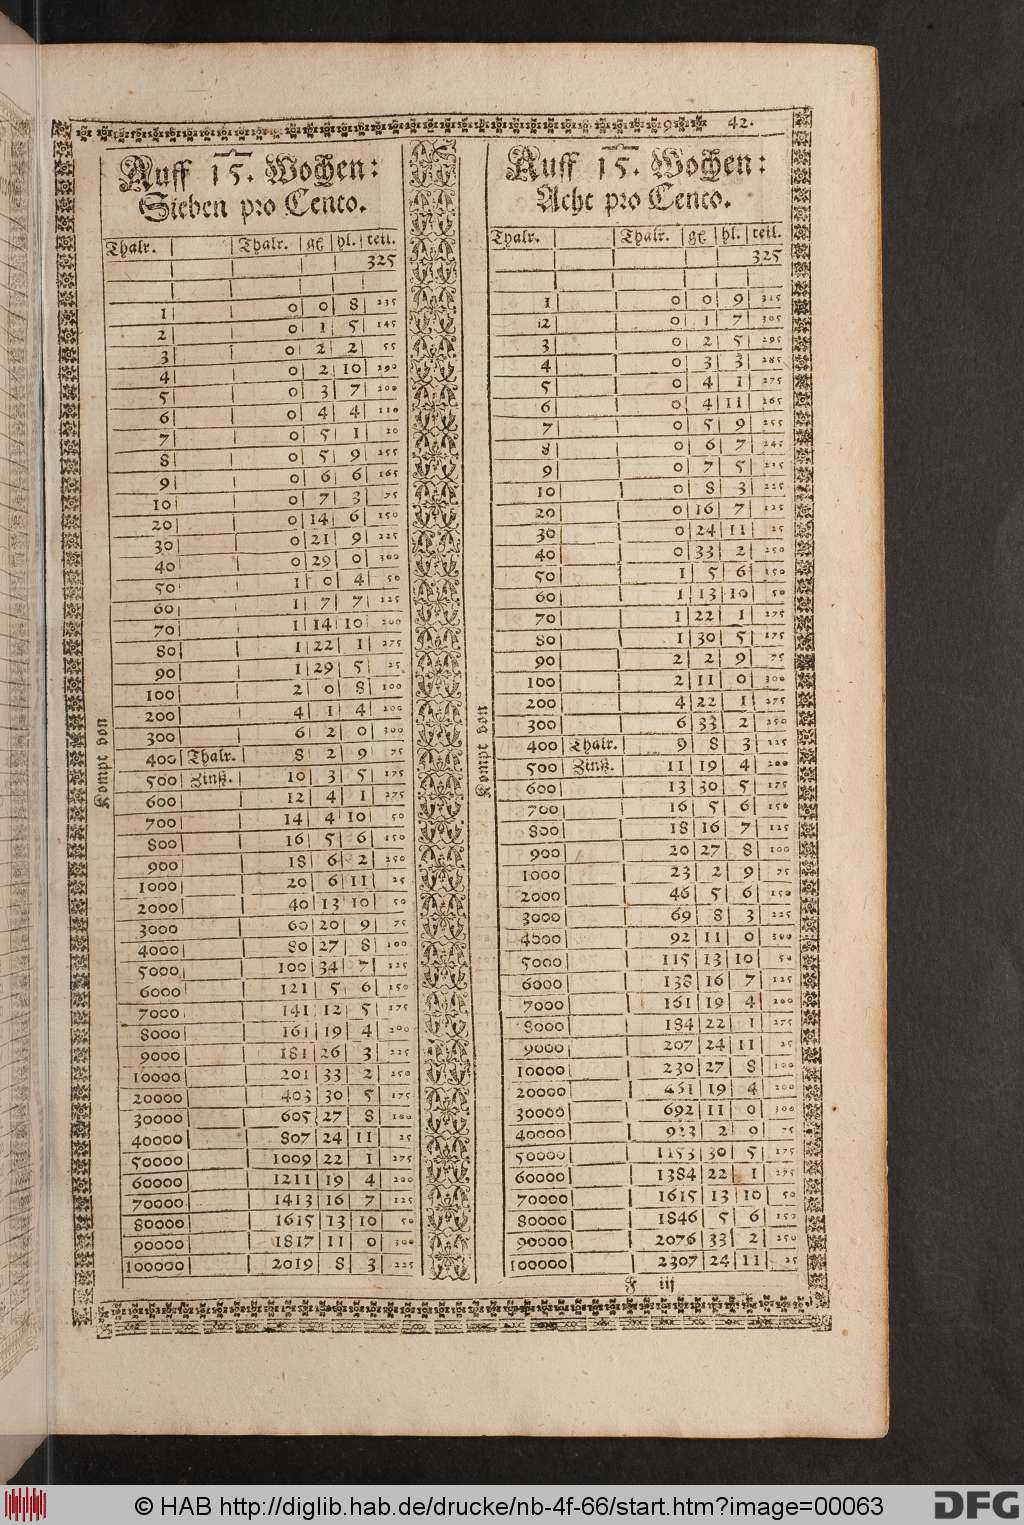 42.
Auff 15. Wochen:
Sieben pro Cento.
Thalr. Thalr. gℓ hl. teil.
325
1 0 0 8 235
2 0 1 5 145
3 0 2 2 55
4 0 2 10 290
5 0 3 7 200
6 0 4 4 110
7 0 5 1 20
8 0 5 9 255
9 0 6 6 165
10 0 7 3 75
20 0 14 6 150
30 0 21 9 225
40 0 29 0 300
50 1 0 4 50
60 1 7 7 125
70 1 14 10 200
80 1 22 1 275
90 1 29 5 25
100 2 0 8 100
200 4 1 4 200
300 6 2 0 300
400 Thalr. 8 2 9 75
500 Zinß. 10 3 5 175
600 12 4 1 275
700 14 4 10 50
800 16 5 6 150
900 18 6 2 250
1000 20 6 11 25
2000 40 13 10 50
3000 60 20 9 75
4000 80 27 8 100
5000 100 34 7 125
6000 121 5 6 150
7000 141 12 5 175
8000 161 19 4 200
9000 181 26 3 225
10000 201 33 2 250
20000 403 30 5 175
30000 605 27 8 100
40000 807 24 11 25
50000 1009 22 1 275
60000 1211 19 4 200
70000 1413 16 7 125
80000 1615 13 10 50
90000 1817 11 0 300
100000 2019 8 3 225
Kompt von
Auff 15. Wochen:
Acht pro Cento.
Thalr. Thalr. gℓ hl. teil.
325
1 0 0 9 315
2 0 1 7 305
3 0 2 5 295
4 0 3 3 285
5 0 4 1 275
6 0 4 11 265
7 0 5 9 255
8 0 6 7 245
9 0 7 5 235
10 0 8 3 225
20 0 16 7 125
30 0 24 11 25
40 0 33 2 250
50 1 5 6 150
60 1 13 10 50
70 1 22 1 275
80 1 30 5 175
90 2 2 9 75
100 2 11 0 300
200 4 22 1 275
300 6 33 2 250
400 Thalr. 9 8 3 225
500 Zinß. 11 19 4 200
600 13 30 5 175
700 16 5 6 150
800 18 16 7 125
900 20 27 8 100
1000 23 2 9 75
2000 46 5 6 150
3000 69 8 3 225
4000 92 11 0 300
5000 115 13 10 50
6000 138 16 7 125
7000 161 19 4 200
8000 184 22 1 275
9000 207 24 11 25
10000 230 27 8 100
20000 461 19 4 200
30000 692 11 0 300
40000 923 2 9 75
50000 1153 30 5 175
60000 1384 22 1 275
70000 1615 13 10 50
80000 1846 5 6 150
90000 2076 33 2 250
100000 2307 24 11 25
Kompt von
F iij
© HAB http://diglib.hab.de/drucke/nb-4f-66/start.htm?image=00063
DFG